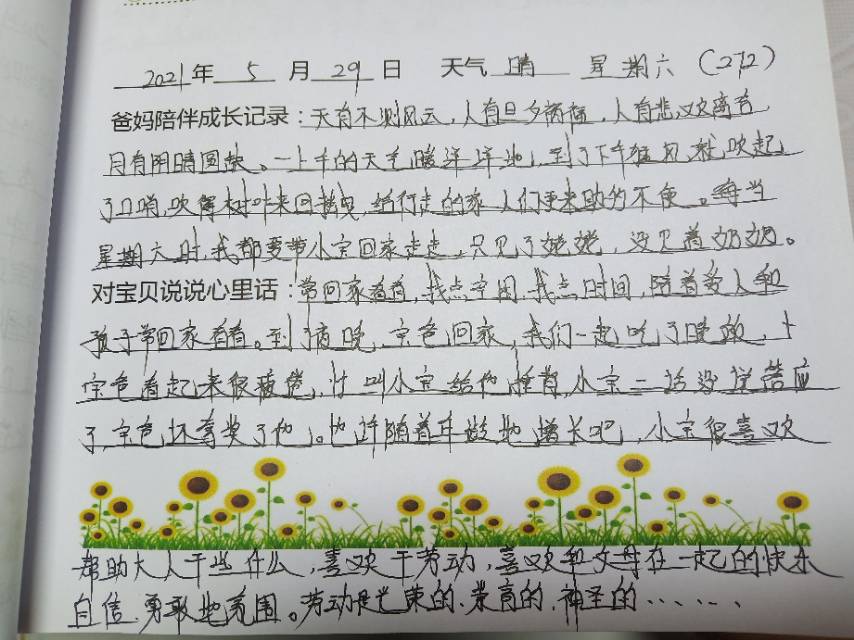 2021年 5 月 29 日 天气 晴 星期六 (272)
爸妈陪伴成长记录:天有不测风云,人有旦夕祸福,人有悲欢离合
月有阴晴圆缺。一上午的天气暖洋洋地,到了下午狂风就吹起
了口哨,吹得树叶来回摇曳,给行走的家人们带来的不便。每当
星期六时,我都要带小宝回家走走,只见了姥姥,没见着奶奶。
对宝贝说说心里话:常回家看看,找点空闲,找点时间,随着爱人和
孩子常回家看看。到了夜晚,宝爸回家,我们一起吃了晚饭,
宝爸看起来很疲倦,叫小宝给他捶背,小宝二话没说答应
了,宝爸还夸奖了他。也许随着年龄地增长吧,小宝很喜欢
帮助大人干些什么,喜欢干劳动,喜欢和父母在一起的快乐
自信、勇敢地氛围。劳动是光荣的、崇高的、神圣的......